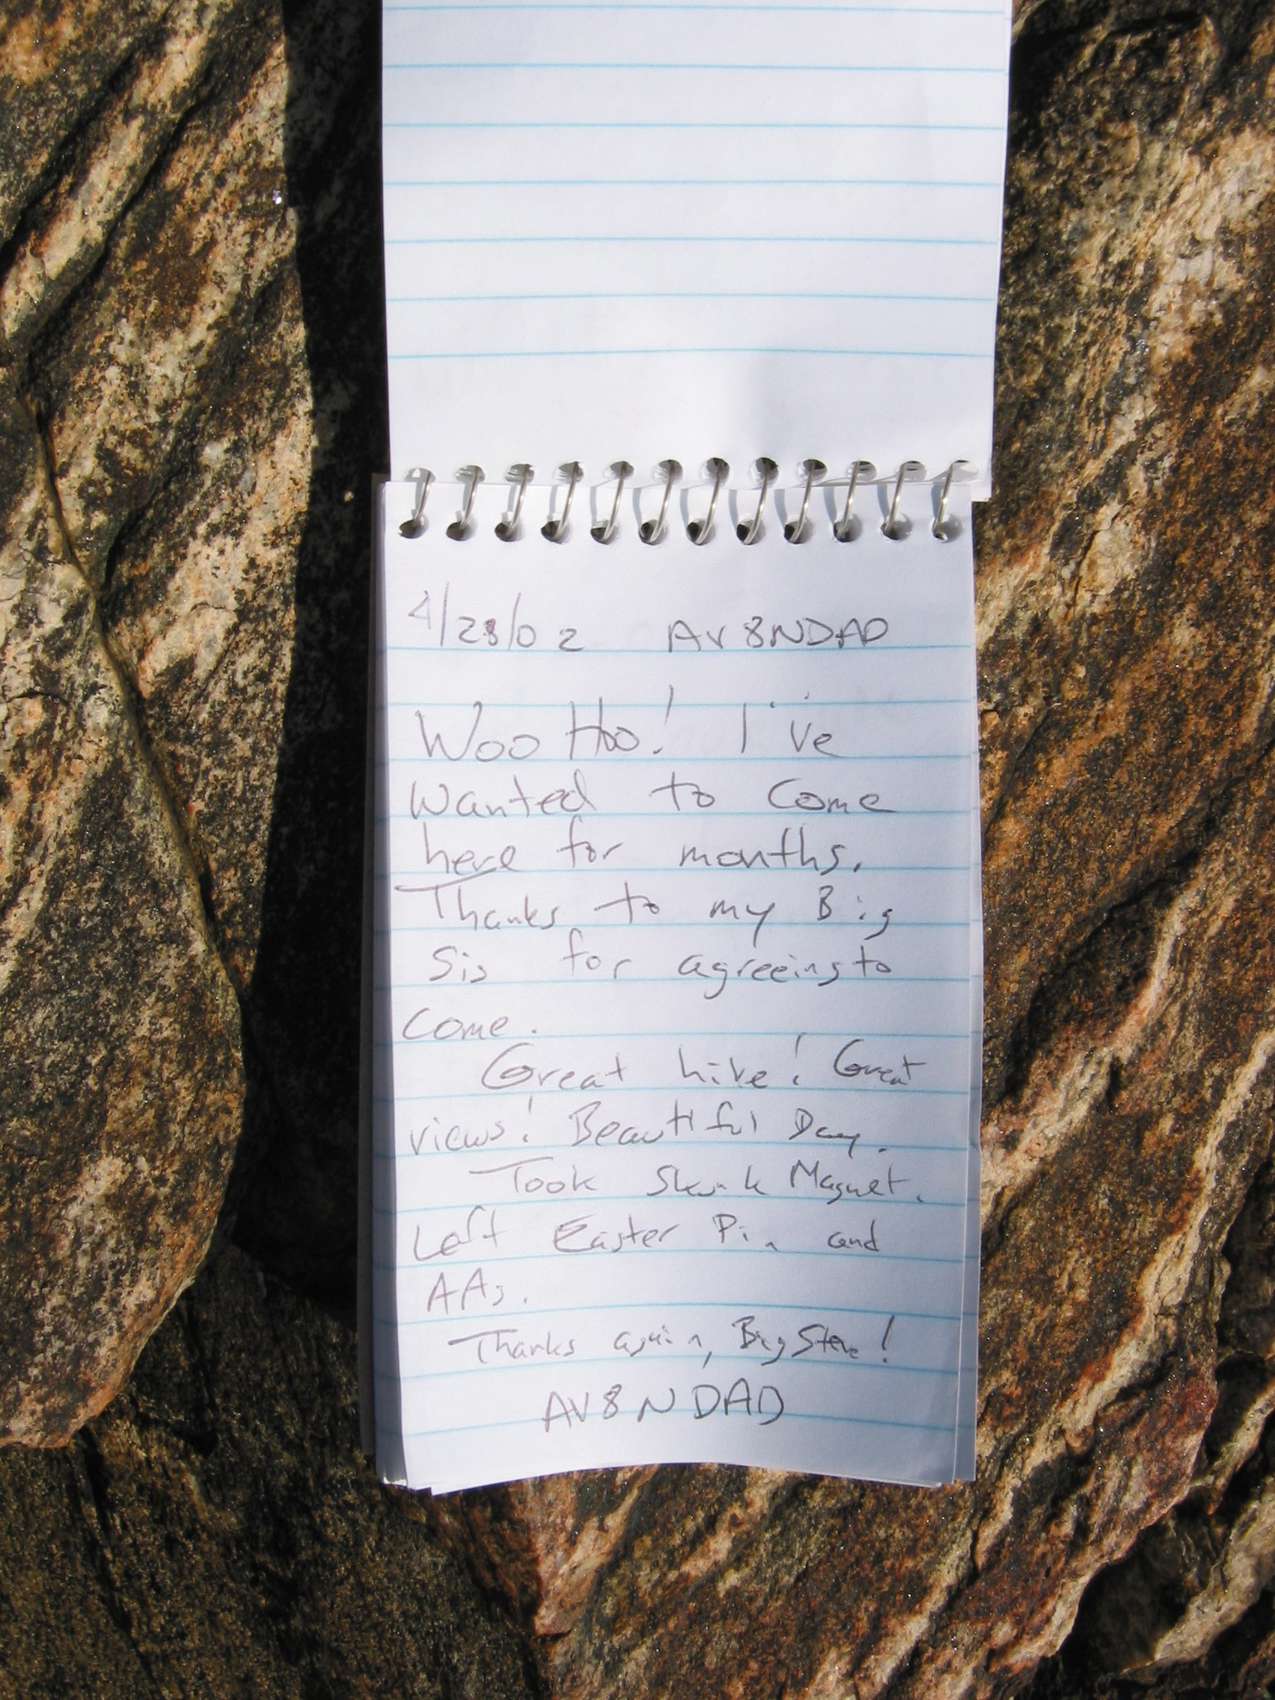 4/28/02 AV8NDAD
Woo Hoo! I've
wanted to come
here for months.
Thanks to my Big
Sis for agreeing to
come.
Great hike! Great
views! Beautiful Day.
Took Skunk Magnet.
Left Easter Pin and
AAs.
Thanks again, Big Steve!
AV8NDAD